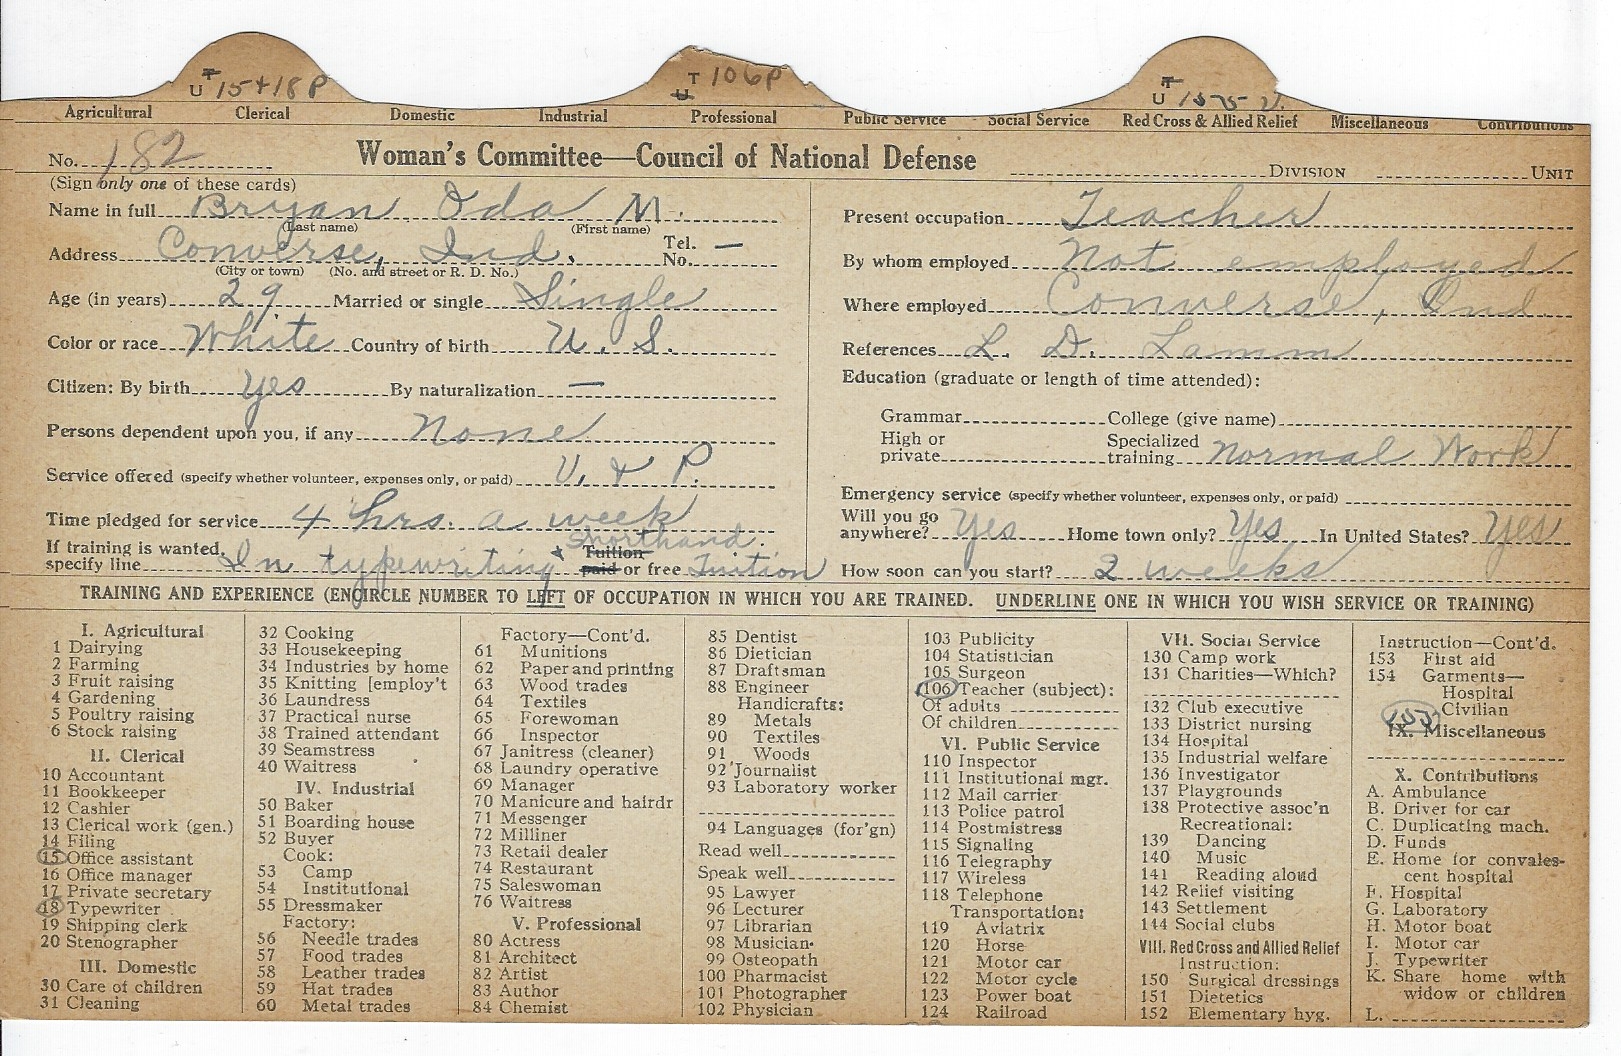 T U 15+18 P
T U 106P
T U 155 V.
Agricultural Clerical Domestic Industrial Professional Public Service Social Service Red Cross & Allied Relief Miscellaneous Contributions
No. 182 Woman's Committee—Council of National Defense DIVISION UNIT
(Sign only one of these cards)
Name in full Bryan Oda M.
(Last name) (First name)
Address Converse, Ind. Tel. No. —
(City or town) (No. and street or R. D. No.)
Age (in years) 29 Married or single Single
Color or race White Country of birth U. S.
Citizen: By birth Yes By naturalization —
Persons dependent upon you, if any None
Service offered (specify whether volunteer, expenses only, or paid) V. & P.
Time pledged for service 4 hrs. a week
If training is wanted, specify line In typewriting & Shorthand. Tuition paid or free Tuition
Present occupation Teacher
By whom employed Not employed
Where employed Converse, Ind.
References L. D. Lamm
Education (graduate or length of time attended):
Grammar College (give name)
High or private Specialized training Normal Work
Emergency service (specify whether volunteer, expenses only, or paid)
Will you go anywhere? Yes Home town only? Yes In United States? Yes
How soon can you start? 2 weeks
TRAINING AND EXPERIENCE (ENCIRCLE NUMBER TO LEFT OF OCCUPATION IN WHICH YOU ARE TRAINED. UNDERLINE ONE IN WHICH YOU WISH SERVICE OR TRAINING)
I. Agricultural
1 Dairying
2 Farming
3 Fruit raising
4 Gardening
5 Poultry raising
6 Stock raising
II. Clerical
10 Accountant
11 Bookkeeper
12 Cashier
13 Clerical work (gen.)
14 Filing
15 Office assistant
16 Office manager
17 Private secretary
18 Typewriter
19 Shipping clerk
20 Stenographer
III. Domestic
30 Care of children
31 Cleaning
32 Cooking
33 Housekeeping
34 Industries by home
35 Knitting [employ't
36 Laundress
37 Practical nurse
38 Trained attendant
39 Seamstress
40 Waitress
IV. Industrial
50 Baker
51 Boarding house
52 Buyer
Cook:
53 Camp
54 Institutional
55 Dressmaker
Factory:
56 Needle trades
57 Food trades
58 Leather trades
59 Hat trades
60 Metal trades
Factory—Cont'd.
61 Munitions
62 Paper and printing
63 Wood trades
64 Textiles
65 Forewoman
66 Inspector
67 Janitress (cleaner)
68 Laundry operative
69 Manager
70 Manicure and hairdr
71 Messenger
72 Milliner
73 Retail dealer
74 Restaurant
75 Saleswoman
76 Waitress
V. Professional
80 Actress
81 Architect
82 Artist
83 Author
84 Chemist
85 Dentist
86 Dietician
87 Draftsman
88 Engineer
Handicrafts:
89 Metals
90 Textiles
91 Woods
92 Journalist
93 Laboratory worker
94 Languages (for'gn)
Read well
Speak well
95 Lawyer
96 Lecturer
97 Librarian
98 Musician
99 Osteopath
100 Pharmacist
101 Photographer
102 Physician
103 Publicity
104 Statistician
105 Surgeon
106 Teacher (subject):
Of adults
Of children
VI. Public Service
110 Inspector
111 Institutional mgr.
112 Mail carrier
113 Police patrol
114 Postmistress
115 Signaling
116 Telegraphy
117 Wireless
118 Telephone
Transportation:
119 Aviatrix
120 Horse
121 Motor car
122 Motor cycle
123 Power boat
124 Railroad
VII. Social Service
130 Camp work
131 Charities—Which?
132 Club executive
133 District nursing
134 Hospital
135 Industrial welfare
136 Investigator
137 Playgrounds
138 Protective assoc'n
Recreational:
139 Dancing
140 Music
141 Reading aloud
142 Relief visiting
143 Settlement
144 Social clubs
VIII. Red Cross and Allied Relief
Instruction:
150 Surgical dressings
151 Dietetics
152 Elementary hyg.
Instruction—Cont'd.
153 First aid
154 Garments—
Hospital
155 Civilian
IX. Miscellaneous
X. Contributions
A. Ambulance
B. Driver for car
C. Duplicating mach.
D. Funds
E. Home for convales-
cent hospital
F. Hospital
G. Laboratory
H. Motor boat
I. Motor car
J. Typewriter
K. Share home with
widow or children
L.